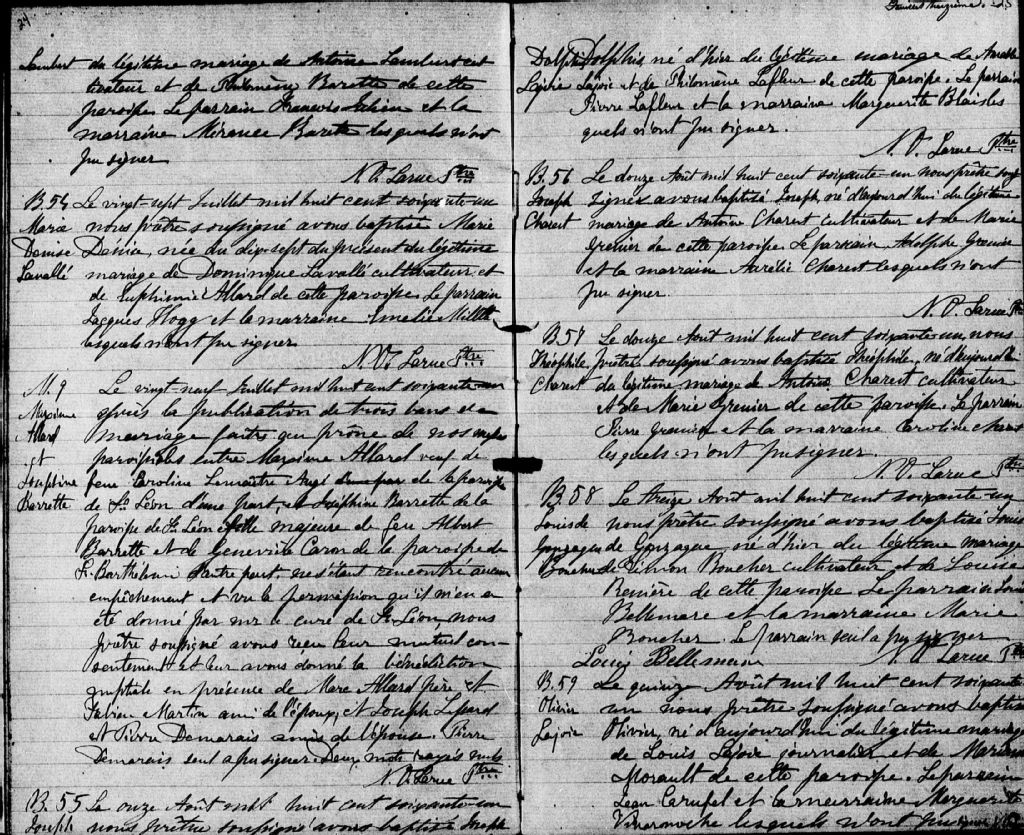 24
Lambert du légitime mariage de Antoine Lambert cul
tivateur et de Philomène Barette de cette
paroisse Le parrain François et la
marraine Barette lesquels n'ont
pu signer
N. O. Larue Ptre
B. 54 Le vingt-sept Juillet mil huit cent soixante-un
Marie nous prêtre soussigné avons baptisé Marie
Denise Denise, née du dix-sept du présent du légitime
Lavallé mariage de Dominique Lavallé cultivateur et
de Euphrémie Allard de cette paroisse Le parrain
Jacques Hogg et la marraine Emelie Millette
lesquels n'ont pu signer
N. O. Larue Ptre
M. 9 Le vingt-neuf Juillet mil huit cent soixante-un
Maxime après la publication de trois bans de
Allard mariage faites au prône de nos messes
et paroissiales entre Maxime Allard veuf de
Josephine feue Caroline Lemaître Augé d'une part de la paroisse
Barrette de St. Léon d'une part, et Joséphine Barrette de la
paroisse de St. Léon fille majeure de feu Albert
Barrette et de Geneviève Caron de la paroisse de
St. Barthélemi d'autre part, ne s'étant rencontré aucun
empêchement et vu la permission qu'il m'en a
été donné par mr. le curé de St. Léon, nous
prêtre soussigné avons reçu leur mutuel con
sentement et leur avons donné la bénédiction
nuptiale en présence de Marc Allard père, et
Fabien Martin ami de l'époux, et Joseph
et Pierre Demarais amis de l'épouse. Pierre
Demarais seul a pu signer. Deux mots rayés nuls
N. O. Larue Ptre
B. 55 Le onze Août mil huit cent soixante-un
Joseph nous prêtre soussigné avons baptisé Joseph
Dolphis Dolphis, né d'hier du légitime mariage de
Lajoie Lajoie et de Philomène Lafleur de cette paroisse. Le parrain
Pierre Lafleur et la marraine Marguerite Blais les
quels n'ont pu signer.
N. O. Larue Ptre
B. 56 Le douze Août mil huit cent soixante-un nous prêtre sous
Joseph signé avons baptisé Joseph, né d'aujourd'hui du légitime
Charest mariage de Antoine Charest cultivateur et de Marie
Grenier de cette paroisse. Le parrain Adolphe Grenier
et la marraine Aurélie Charest lesquels n'ont
pu signer.
N. O. Larue Ptre
B. 57 Le douze Août mil huit cent soixante-un, nous
Théophile prêtre soussigné avons baptisé Théophile, né d'aujourd'hui
Charest du légitime mariage de Antoine Charest cultivateur
et de Marie Grenier de cette paroisse. Le parrain
Pierre Grenier et la marraine Caroline Charest
lesquels n'ont pu signer.
N. O. Larue Ptre
B. 58 Le treize Août mil huit cent soixante un
Louis de nous prêtre soussigné avons baptisé Louis
Gonzague de Gonzague né d'hier du légitime mariage
Boucher de Boucher cultivateur et de Louise
de cette paroisse Le parrain Louis
Bellemare et la marraine Marie
Boucher. Le parrain seul a pu signer
Louis Bellemare N. O. Larue Ptre
B. 59 Le quinze Août mil huit cent soixante
Olivier un nous prêtre soussigné avons baptisé
Lajoie Olivier, né d'aujourd'hui du légitime mariage
de Louis Lajoie journalier et de
Morault de cette paroisse. Le parrain
Jean et la marraine Marguerite
lesquels n'ont pu signer